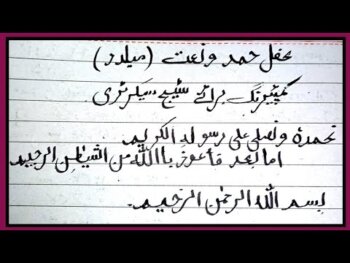 محفل حمد و نعت (میلاد)
کمپیئرنگ برائے سٹیج سیکرٹری
نحمدہ و نصلی علی رسولہ الکریم
اما بعد فاعوذ باللہ من الشیطٰن الرجیم
بسم اللہ الرحمٰن الرحیم۔